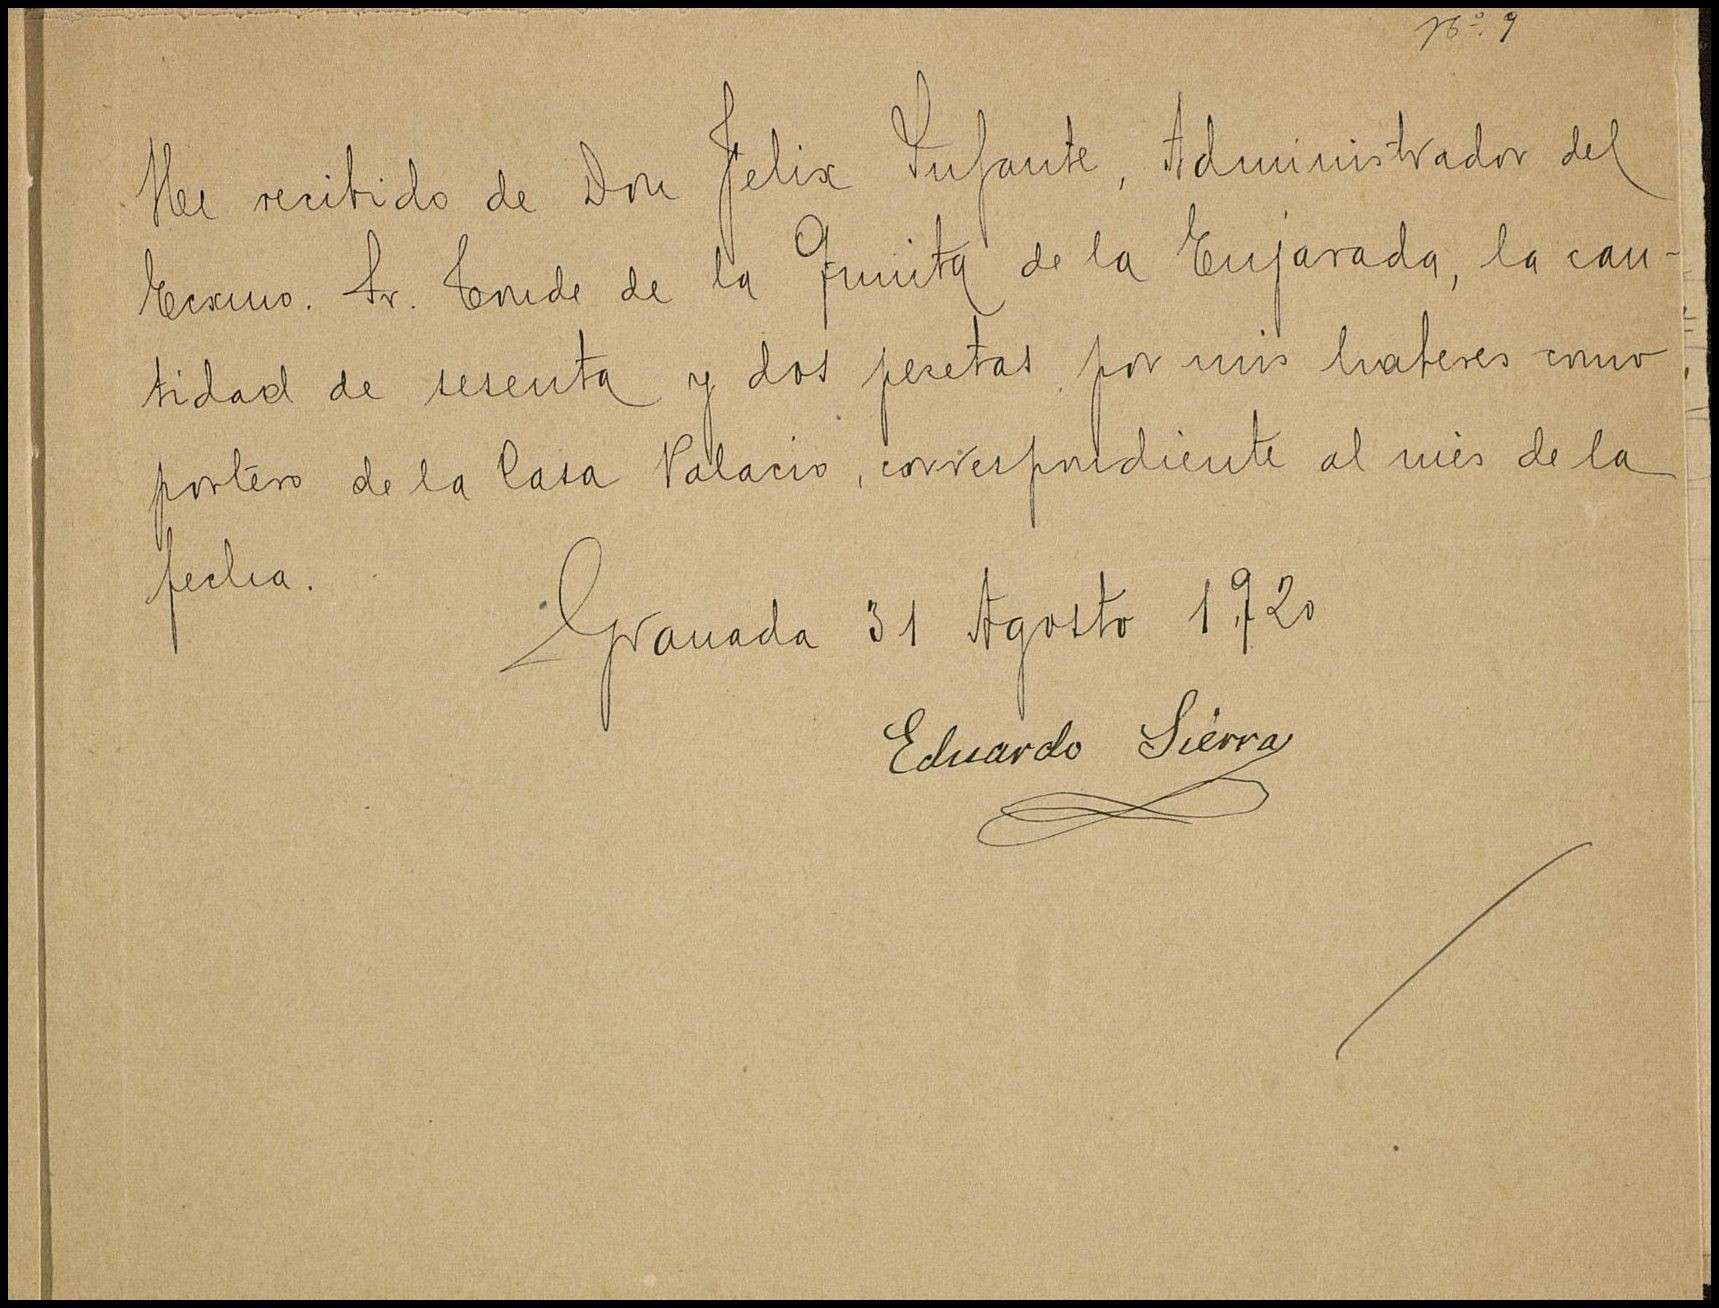 Nº. 9
He recibido de Don Felix Infante, Administrador del
Excmo. Sr. Conde de la Quinta de la Enjarada, la can-
tidad de sesenta y dos pesetas por mis haberes como
portero de la Casa Palacio, correspondiente al mes de la
fecha.
Granada 31 Agosto 1920
Eduardo Sierra